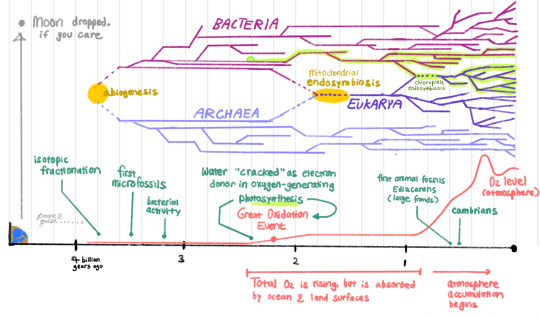 Moon dropped.
if you care
BACTERIA
abiogenesis
mitochondrial
endosymbiosis
chloroplast
endosymbiosis
EUKARYA
ARCHAEA
isotopic
fractionation
first
microfossils
bacterial
activity
Water "cracked" as electron
donor in oxygen-generating
photosynthesis
Great Oxidation
Event
first animal fossils
Ediacarans
(large fronds)
cambrians
O2 level
(atmosphere)
4 billion
years ago
3
2
1
Total O2 is rising, but is absorbed
by ocean & land surfaces
atmosphere
accumulation
begins